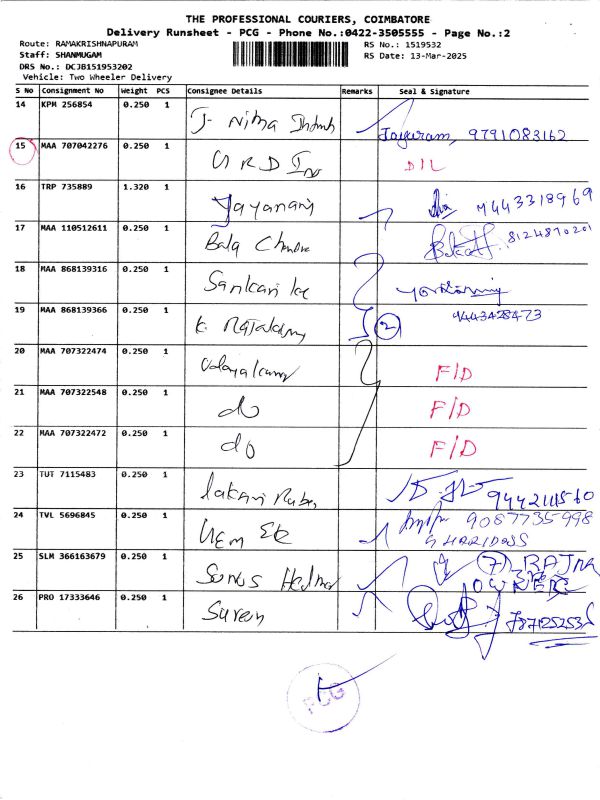 THE PROFESSIONAL COURIERS, COIMBATORE
Delivery Runsheet - PCG - Phone No.:0422-3505555 - Page No.:2
Route: RAMAKRISHNAPURAM
Staff: SHANMUGAM
DRS No.: DCJB151953202
Vehicle: Two Wheeler Delivery
RS No.: 1519532
RS Date: 13-Mar-2025
S No Consignment No Weight PCS Consignee Details Remarks Seal & Signature
14 KPM 256854 0.250 1 J- Nitha Jayaram, 9791083162
15 MAA 707042276 0.250 1 U R D Inv D/L
16 TRP 735889 1.320 1 Jayanani 9443318969
17 MAA 110512611 0.250 1 Bala Chendra 8124870201
18 MAA 868139316 0.250 1 Sankari
19 MAA 868139366 0.250 1 K. 2 9443428473
20 MAA 707322474 0.250 1 Udayakumar F/D
21 MAA 707322548 0.250 1 do F/D
22 MAA 707322472 0.250 1 do F/D
23 TUT 7115483 0.250 1
24 TVL 5696845 0.250 1 9087735998
G HARIDOSS
25 SLM 366163679 0.250 1 RAJNA
26 PRO 17333646 0.250 1 Suren
PCG